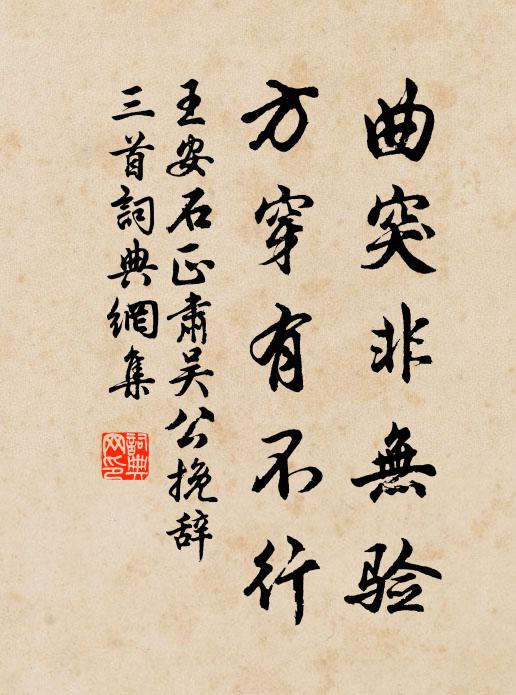 曲突非無验
方穿有不行
王安石正肅吴公挽辞
三首詞典網集
詞典
网印